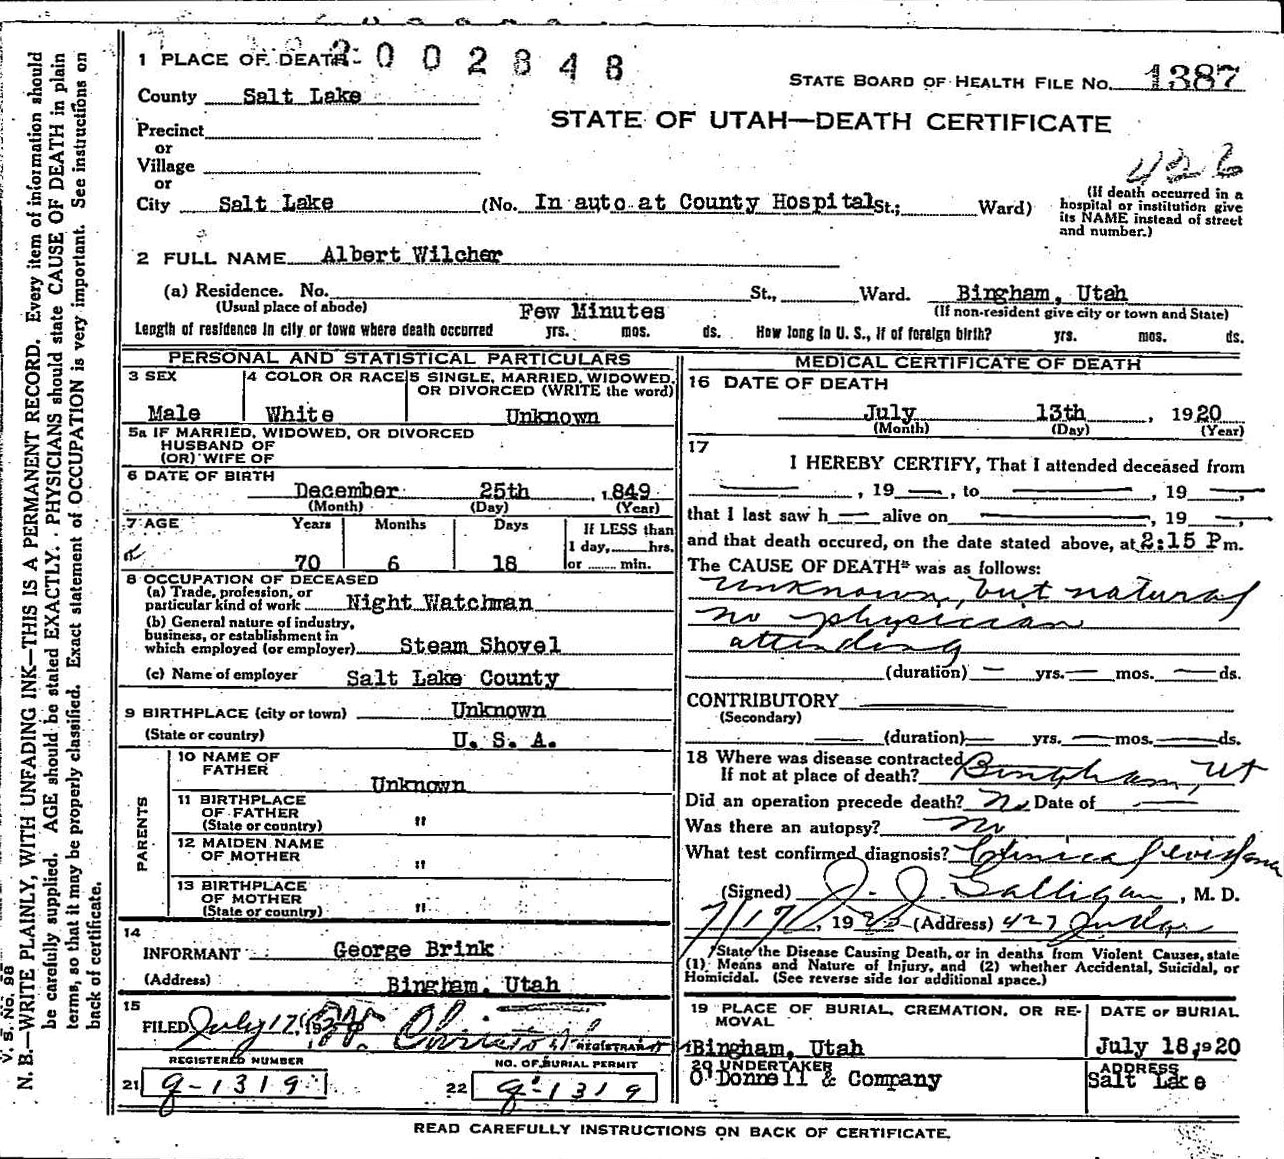 1 PLACE OF DEATH- 002848
STATE BOARD OF HEALTH FILE No. 1387
County Salt Lake
STATE OF UTAH—DEATH CERTIFICATE
Precinct
or
Village
426
or
City Salt Lake (No. In auto at County Hospital St.; Ward)
(If death occurred in a
hospital or institution give
its NAME instead of street
and number.)
2 FULL NAME Albert Wilcher
(a) Residence. No. St., Ward. Bingham, Utah
(Usual place of abode) (If non-resident give city or town and State)
Few Minutes
Length of residence in city or town where death occurred yrs. mos. ds. How long in U. S., if of foreign birth? yrs. mos. ds.
PERSONAL AND STATISTICAL PARTICULARS
3 SEX
Male
4 COLOR OR RACE
White
5 SINGLE, MARRIED, WIDOWED,
OR DIVORCED (WRITE the word)
Unknown
5a IF MARRIED, WIDOWED, OR DIVORCED
HUSBAND OF
(OR) WIFE OF
6 DATE OF BIRTH
December 25th , 1849
(Month) (Day) (Year)
7 AGE Years Months Days If LESS than
1 day, hrs.
70 6 18 or min.
8 OCCUPATION OF DECEASED
(a) Trade, profession, or
particular kind of work Night Watchman
(b) General nature of industry,
business, or establishment in
which employed (or employer) Steam Shovel
(c) Name of employer Salt Lake County
9 BIRTHPLACE (city or town) Unknown
(State or country) U. S. A.
PARENTS
10 NAME OF
FATHER
Unknown
11 BIRTHPLACE
OF FATHER
(State or country) "
12 MAIDEN NAME
OF MOTHER "
13 BIRTHPLACE
OF MOTHER
(State or country) "
14
INFORMANT George Brink
(Address) Bingham, Utah
15
FILED July 17, 1920
REGISTRAR
REGISTERED NUMBER
21 9-1319
NO. OF BURIAL PERMIT
22 9-1319
MEDICAL CERTIFICATE OF DEATH
16 DATE OF DEATH
July 13th , 1920
(Month) (Day) (Year)
17
I HEREBY CERTIFY, That I attended deceased from
, 19 — , to — , 19 — ,
that I last saw h — alive on — , 19 — ,
and that death occured, on the date stated above, at 2:15 Pm.
The CAUSE OF DEATH* was as follows:
unknown, but natural
no physician
attending
(duration) — yrs. — mos. — ds.
CONTRIBUTORY
(Secondary)
(duration) — yrs. — mos. — ds.
18 Where was disease contracted
If not at place of death? Bingham, Ut
Did an operation precede death? No Date of —
Was there an autopsy? No
What test confirmed diagnosis? Clinical
(Signed) J. J. Galligan, M. D.
7/17, 1920 (Address) 427 Judge
*State the Disease Causing Death, or in deaths from Violent Causes, state
(1) Means and Nature of Injury, and (2) whether Accidental, Suicidal, or
Homicidal. (See reverse side for additional space.)
19 PLACE OF BURIAL, CREMATION, OR RE-
MOVAL
Bingham, Utah
DATE OF BURIAL
July 18, 1920
20 UNDERTAKER
O'Donnell & Company
ADDRESS
Salt Lake
READ CAREFULLY INSTRUCTIONS ON BACK OF CERTIFICATE.
V. S. No. 98
N. B.—WRITE PLAINLY, WITH UNFADING INK—THIS IS A PERMANENT RECORD. Every item of information should
be carefully supplied. AGE should be stated EXACTLY. PHYSICIANS should state CAUSE OF DEATH in plain
terms, so that it may be properly classified. Exact statement of OCCUPATION is very important. See instructions on
back of certificate.